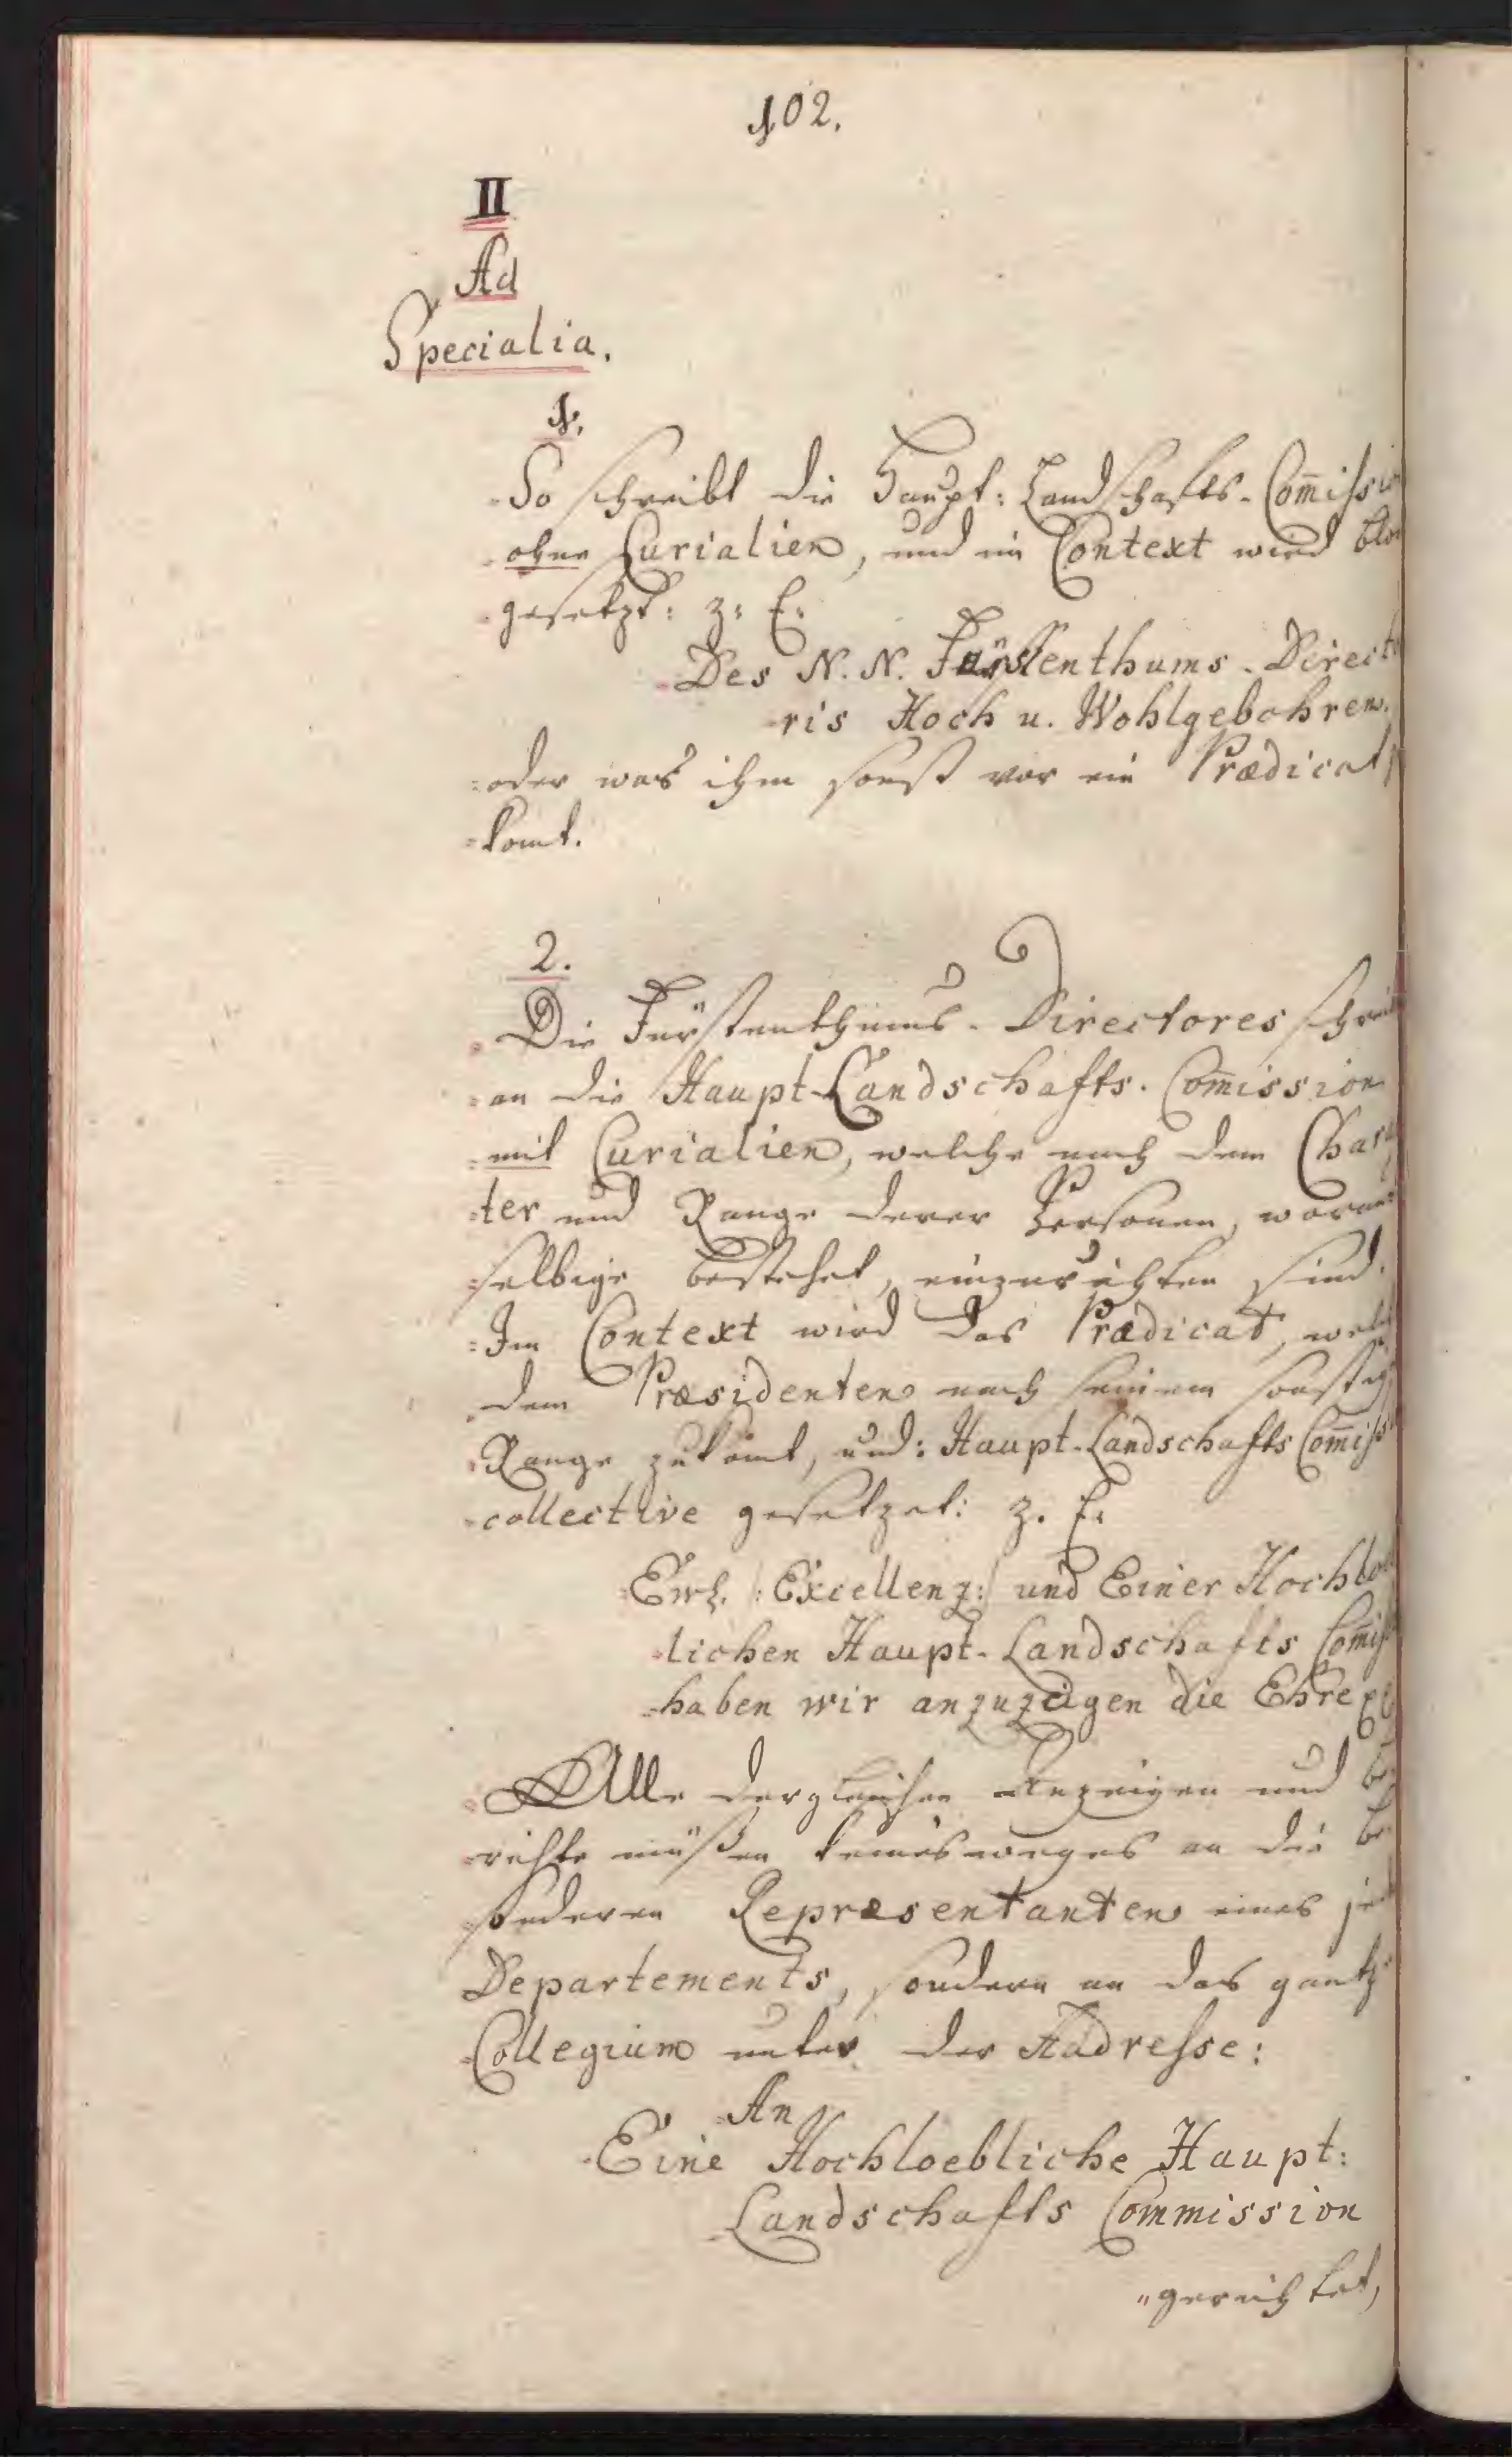 102.
II
Ad
Specialia.
1.
So schreibt die Haupt: Landschafts-Com̄issio
ohne Curialien, und im Context wird blos
gesetzt: z: E:
Des N. N. Fürstenthums-Directo
ris Hoch u. Wohlgebohren.
oder was ihm sonst vor ein Prædicat
komt.
2.
Die Fürstenthums-Directores schrei
an die Haupt-Landschafts-Com̄ission
mit Curialien, welche nach dem Char
ter und Range derer Personen, woraus
selbige bestehet, einzurichten sind.
Im Context wird das Prædicat, welch
dem Præsidenten nach seinem sonstig
Range zukomt, und: Haupt-Landschafts Com̄iss
collective gesetzet: z. E:
Ew. /: Excellenz :/ und Einer Hochloe
lichen Haupt-Landschafts Com̄iss
haben wir anzuzeigen die Ehre
Alle dergleichen Anzeigen und Be
richte müßen keinesweges an die be
sonderen Repræsentanten eines jed
Departements, sondern an das gantz
Collegium unter der Addresse:
An
Eine Hochloebliche Haupt:
Landschafts Commission
"gerichtet,